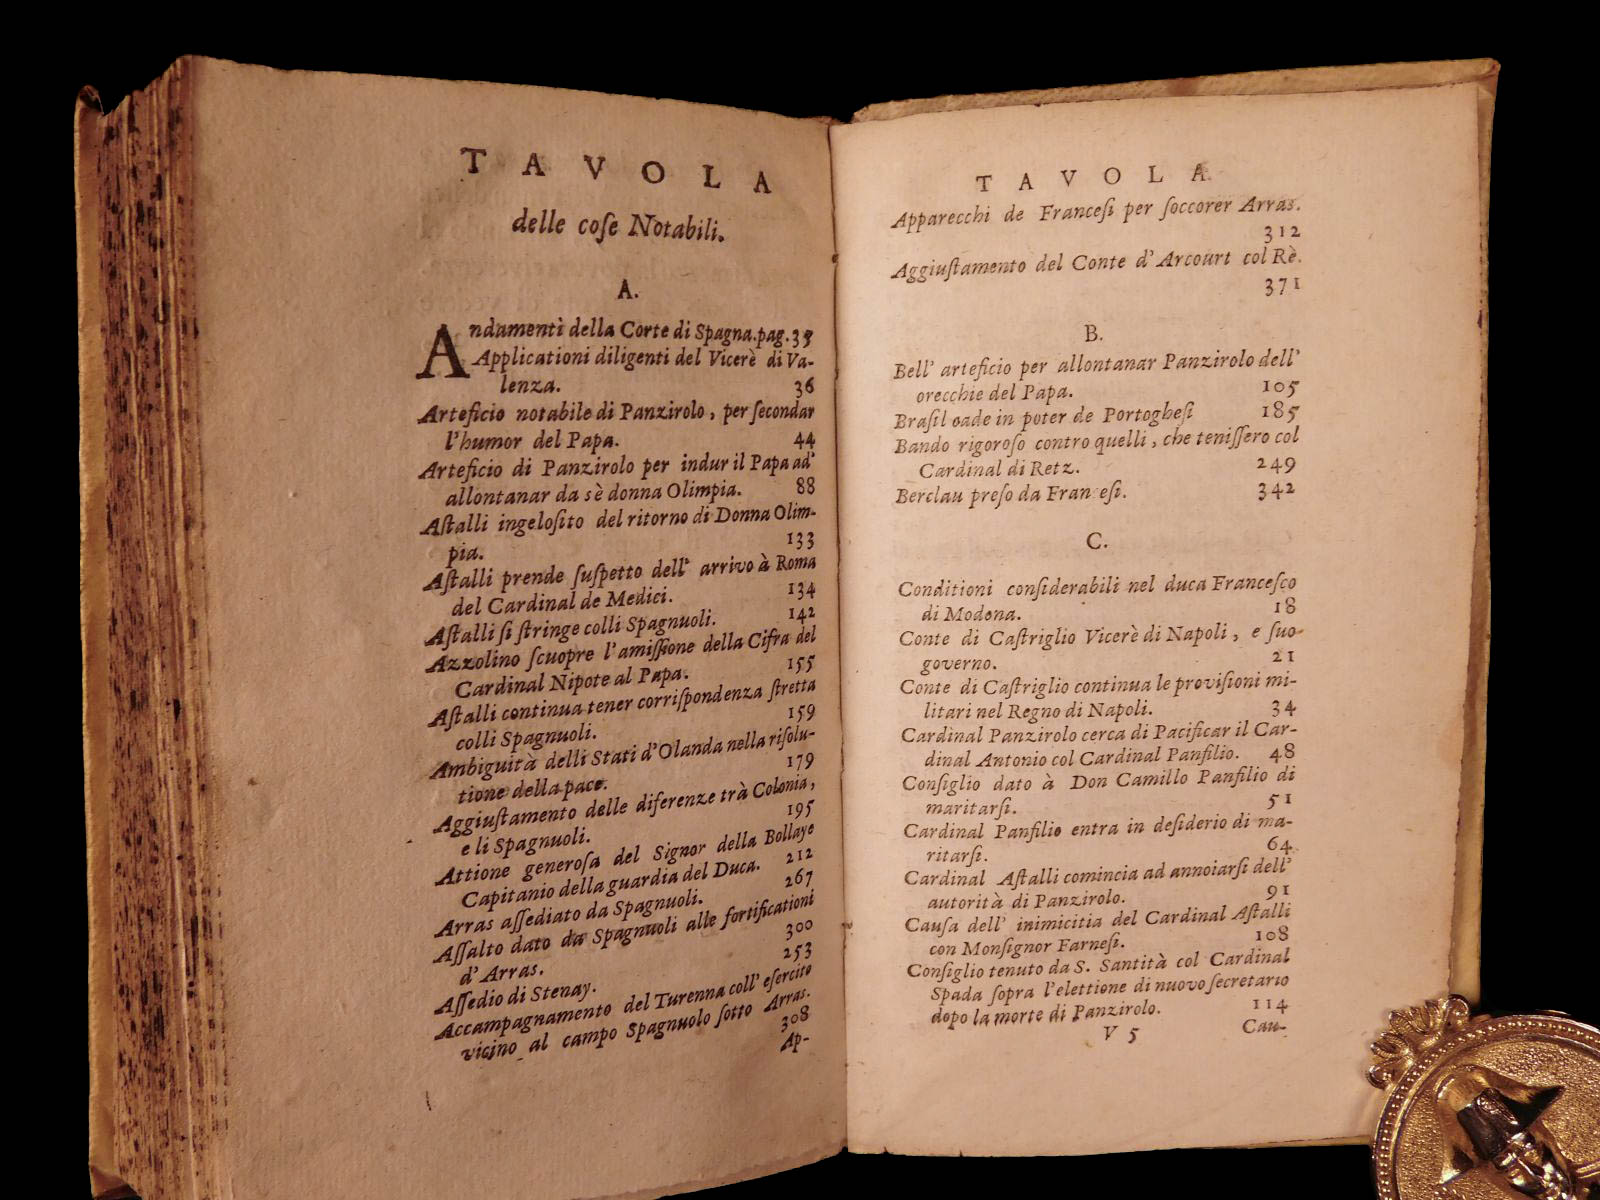 TAVOLA
delle coſe Notabili.
A.
Andamenti della Corte di Spagna.pag.33
Applicationi diligenti del Vicerè di Va-
lenza. 36
Arteficio notabile di Panzirolo, per ſecondar
l'humor del Papa. 44
Arteficio di Panzirolo per indur il Papa ad'
allontanar da sè donna Olimpia. 88
Aſtalli ingeloſito del ritorno di Donna Olim-
pia. 133
Aſtalli prende ſuſpetto dell' arrivo à Roma
del Cardinal de Medici. 134
Aſtalli ſi ſtringe colli Spagnuoli. 142
Azzolino ſcuopre l'amiſſione della Cifra del
Cardinal Nipote al Papa. 155
Aſtalli continua tener corriſpondenza ſtretta
colli Spagnuoli. 159
Ambiguità delli Stati d'Olanda nella riſolu-
tione della pace. 179
Aggiuſtamento delle diferenze trà Colonia,
e li Spagnuoli. 195
Attione generoſa del Signor della Bollaye
Capitanio della guardia del Duca. 212
Arras aſſediato da Spagnuoli. 267
Aſſalto dato da Spagnuoli alle fortificationi
d'Arras. 300
Aſſedio di Stenay. 253
Accampagnamento del Turenna coll' eſercito
vicino al campo Spagnuolo ſotto Arras.
308
Ap-
TAVOLA
Apparecchi de Franceſi per ſoccorer Arras.
312
Aggiuſtamento del Conte d'Arcourt col Rè.
371
B.
Bell' arteficio per allontanar Panzirolo dell'
orecchie del Papa. 105
Braſil cade in poter de Portogheſi 185
Bando rigoroſo contro quelli, che teniſſero col
Cardinal di Retz. 249
Berclau preſo da Franceſi. 342
C.
Conditioni conſiderabili nel duca Franceſco
di Modena. 18
Conte di Caſtriglio Vicerè di Napoli, e ſuo
governo. 21
Conte di Caſtriglio continua le proviſioni mi-
litari nel Regno di Napoli. 34
Cardinal Panzirolo cerca di Pacificar il Car-
dinal Antonio col Cardinal Panfilio. 48
Conſiglio dato à Don Camillo Panfilio di
maritarſi. 51
Cardinal Panfilio entra in deſiderio di ma-
ritarſi. 64
Cardinal Aſtalli comincia ad annoiarſi dell'
autorità di Panzirolo. 91
Cauſa dell' inimicitia del Cardinal Aſtalli
con Monſignor Farneſi. 108
Conſiglio tenuto da S. Santità col Cardinal
Spada ſopra l'elettione di nuovo ſecretario
dopo la morte di Panzirolo. 114
V 5 Cau-